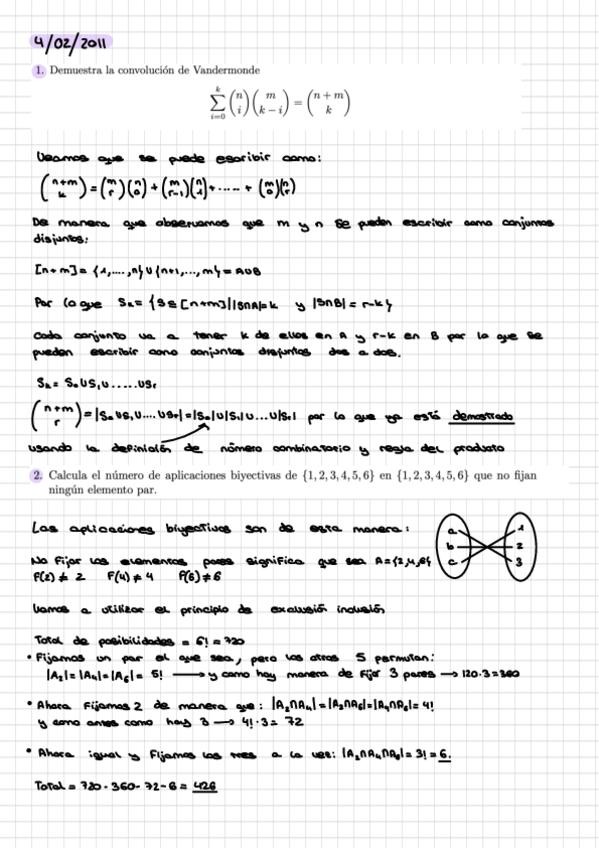 4/02/2011
1. Demuestra la convolución de Vandermonde
\sum_{i=0}^{k} \binom{n}{i} \binom{m}{k-i} = \binom{n+m}{k}
Veamos que se puede escribir como:
\binom{n+m}{k} = \binom{m}{r}\binom{n}{0} + \binom{m}{r-1}\binom{n}{1} + ..... + \binom{m}{0}\binom{n}{r}
De manera que observamos que m y n se pueden escribir como conjuntos
disjuntos:
[n+m] = {1,....,n} ∪ {n+1,...,m} = A∪B
Por lo que Sₖ = {S ⊆ [n+m] | |S∩A|=k y |S∩B| = r-k}
Cada conjunto va a tener k de ellos en A y r-k en B por lo que se
pueden escribir como conjuntos disjuntos dos a dos.
Sₖ = S₀ ∪ S₁ ∪ ...... ∪ Sᵣ
\binom{n+m}{r} = |S₀ ∪ S₁ ∪ .... ∪ Sᵣ| = |S₀| ∪ |S₁| ∪ ... ∪ |Sᵣ| por lo que ya está demostrado
usando la definición de número combinatorio y regla del producto
2. Calcula el número de aplicaciones biyectivas de {1, 2, 3, 4, 5, 6} en {1, 2, 3, 4, 5, 6} que no fijan
ningún elemento par.
Las aplicaciones biyectivas son de esta manera:
a 1
b 2
c 3
No fijar los elementos pares significa que sea A={2,4,6}
F(2) ≠ 2 F(4) ≠ 4 F(6) ≠ 6
Vamos a utilizar el principio de exclusión inclusión
Total de posibilidades = 6! = 720
• Fijamos un par el que sea, pero los otros 5 permutan:
|A₂| = |A₄| = |A₆| = 5! → y como hay manera de fijar 3 pares → 120·3=360
• Ahora fijamos 2 de manera que: |A₂∩A₄| = |A₂∩A₆| = |A₄∩A₆| = 4!
y como antes como hay 3 → 4!·3 = 72
• Ahora igual y fijamos los tres a la vez: |A₂∩A₄∩A₆| = 3! = 6.
Total = 720 - 360 - 72 - 6 = 426